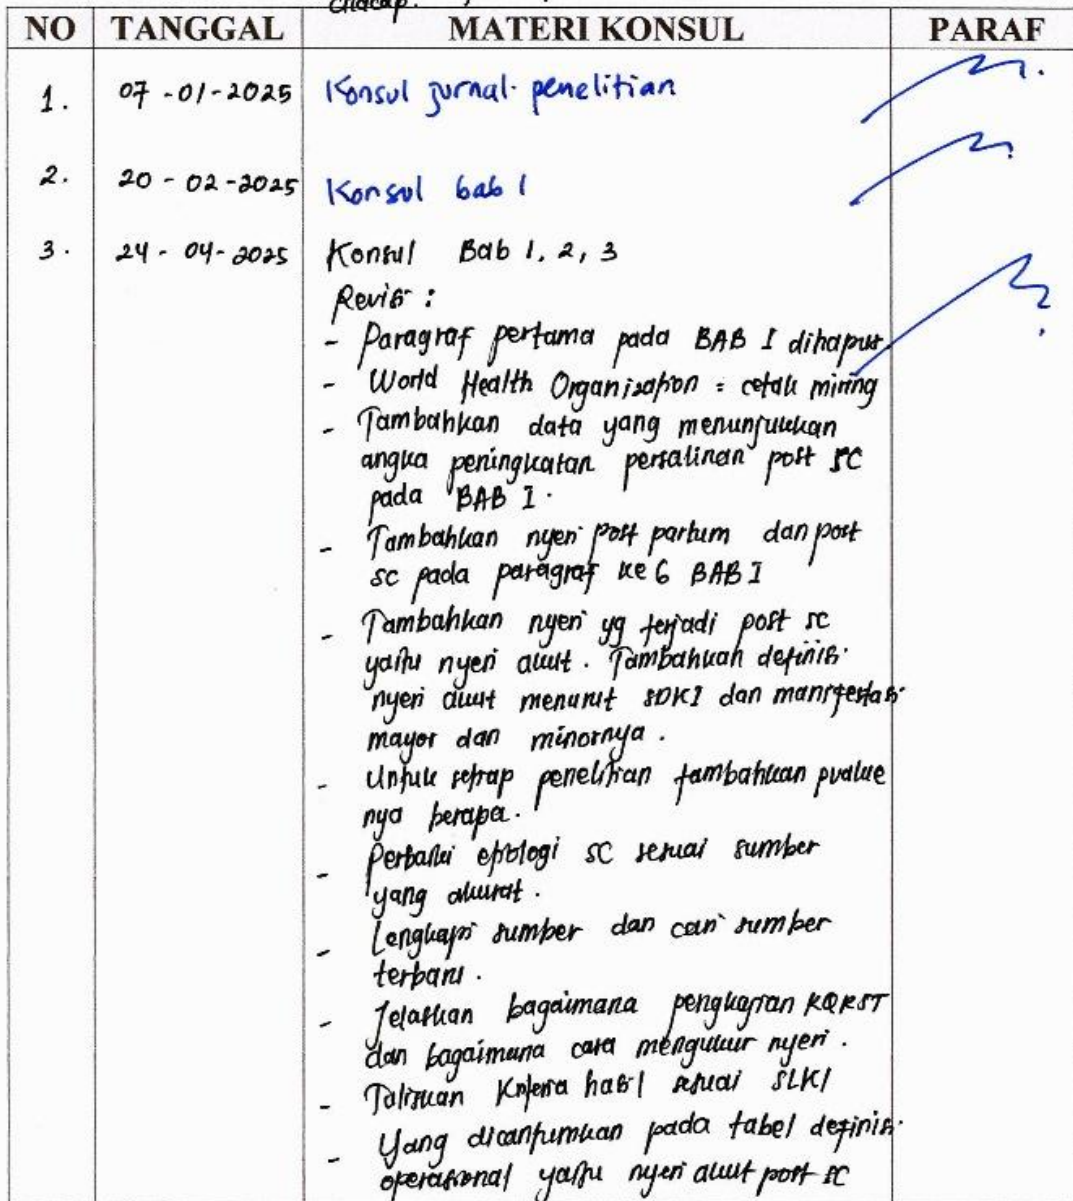 Cilacap.
NO TANGGAL MATERI KONSUL PARAF
1. 07-01-2025 Konsul jurnal penelitian
2. 20-02-2025 Konsul bab 1
3. 24-04-2025 Konsul Bab 1, 2, 3
Revisi :
- Paragraf pertama pada BAB I dihapus
- World Health Organization = cetak miring
- Tambahkan data yang menunjukkan
angka peningkatan persalinan post SC
pada BAB I.
- Tambahkan nyeri post partum dan post
sc pada paragraf ke 6 BAB I
- Tambahkan nyeri yg terjadi post sc
yaitu nyeri akut. Tambahkan definisi
nyeri akut menurut SDKI dan manifestasi
mayor dan minornya.
- Untuk setiap penelitian tambahkan pvalue
nya berapa.
- Perbaiki etiologi SC sesuai sumber
yang akurat.
- Lengkapi sumber dan cari sumber
terbaru.
- Jelaskan bagaimana pengkajian PQRST
dan bagaimana cara mengukur nyeri.
- Tuliskan Kriteria hasil sesuai SLKI
- Yang dicantumkan pada tabel definisi
operasional yaitu nyeri akut post SC